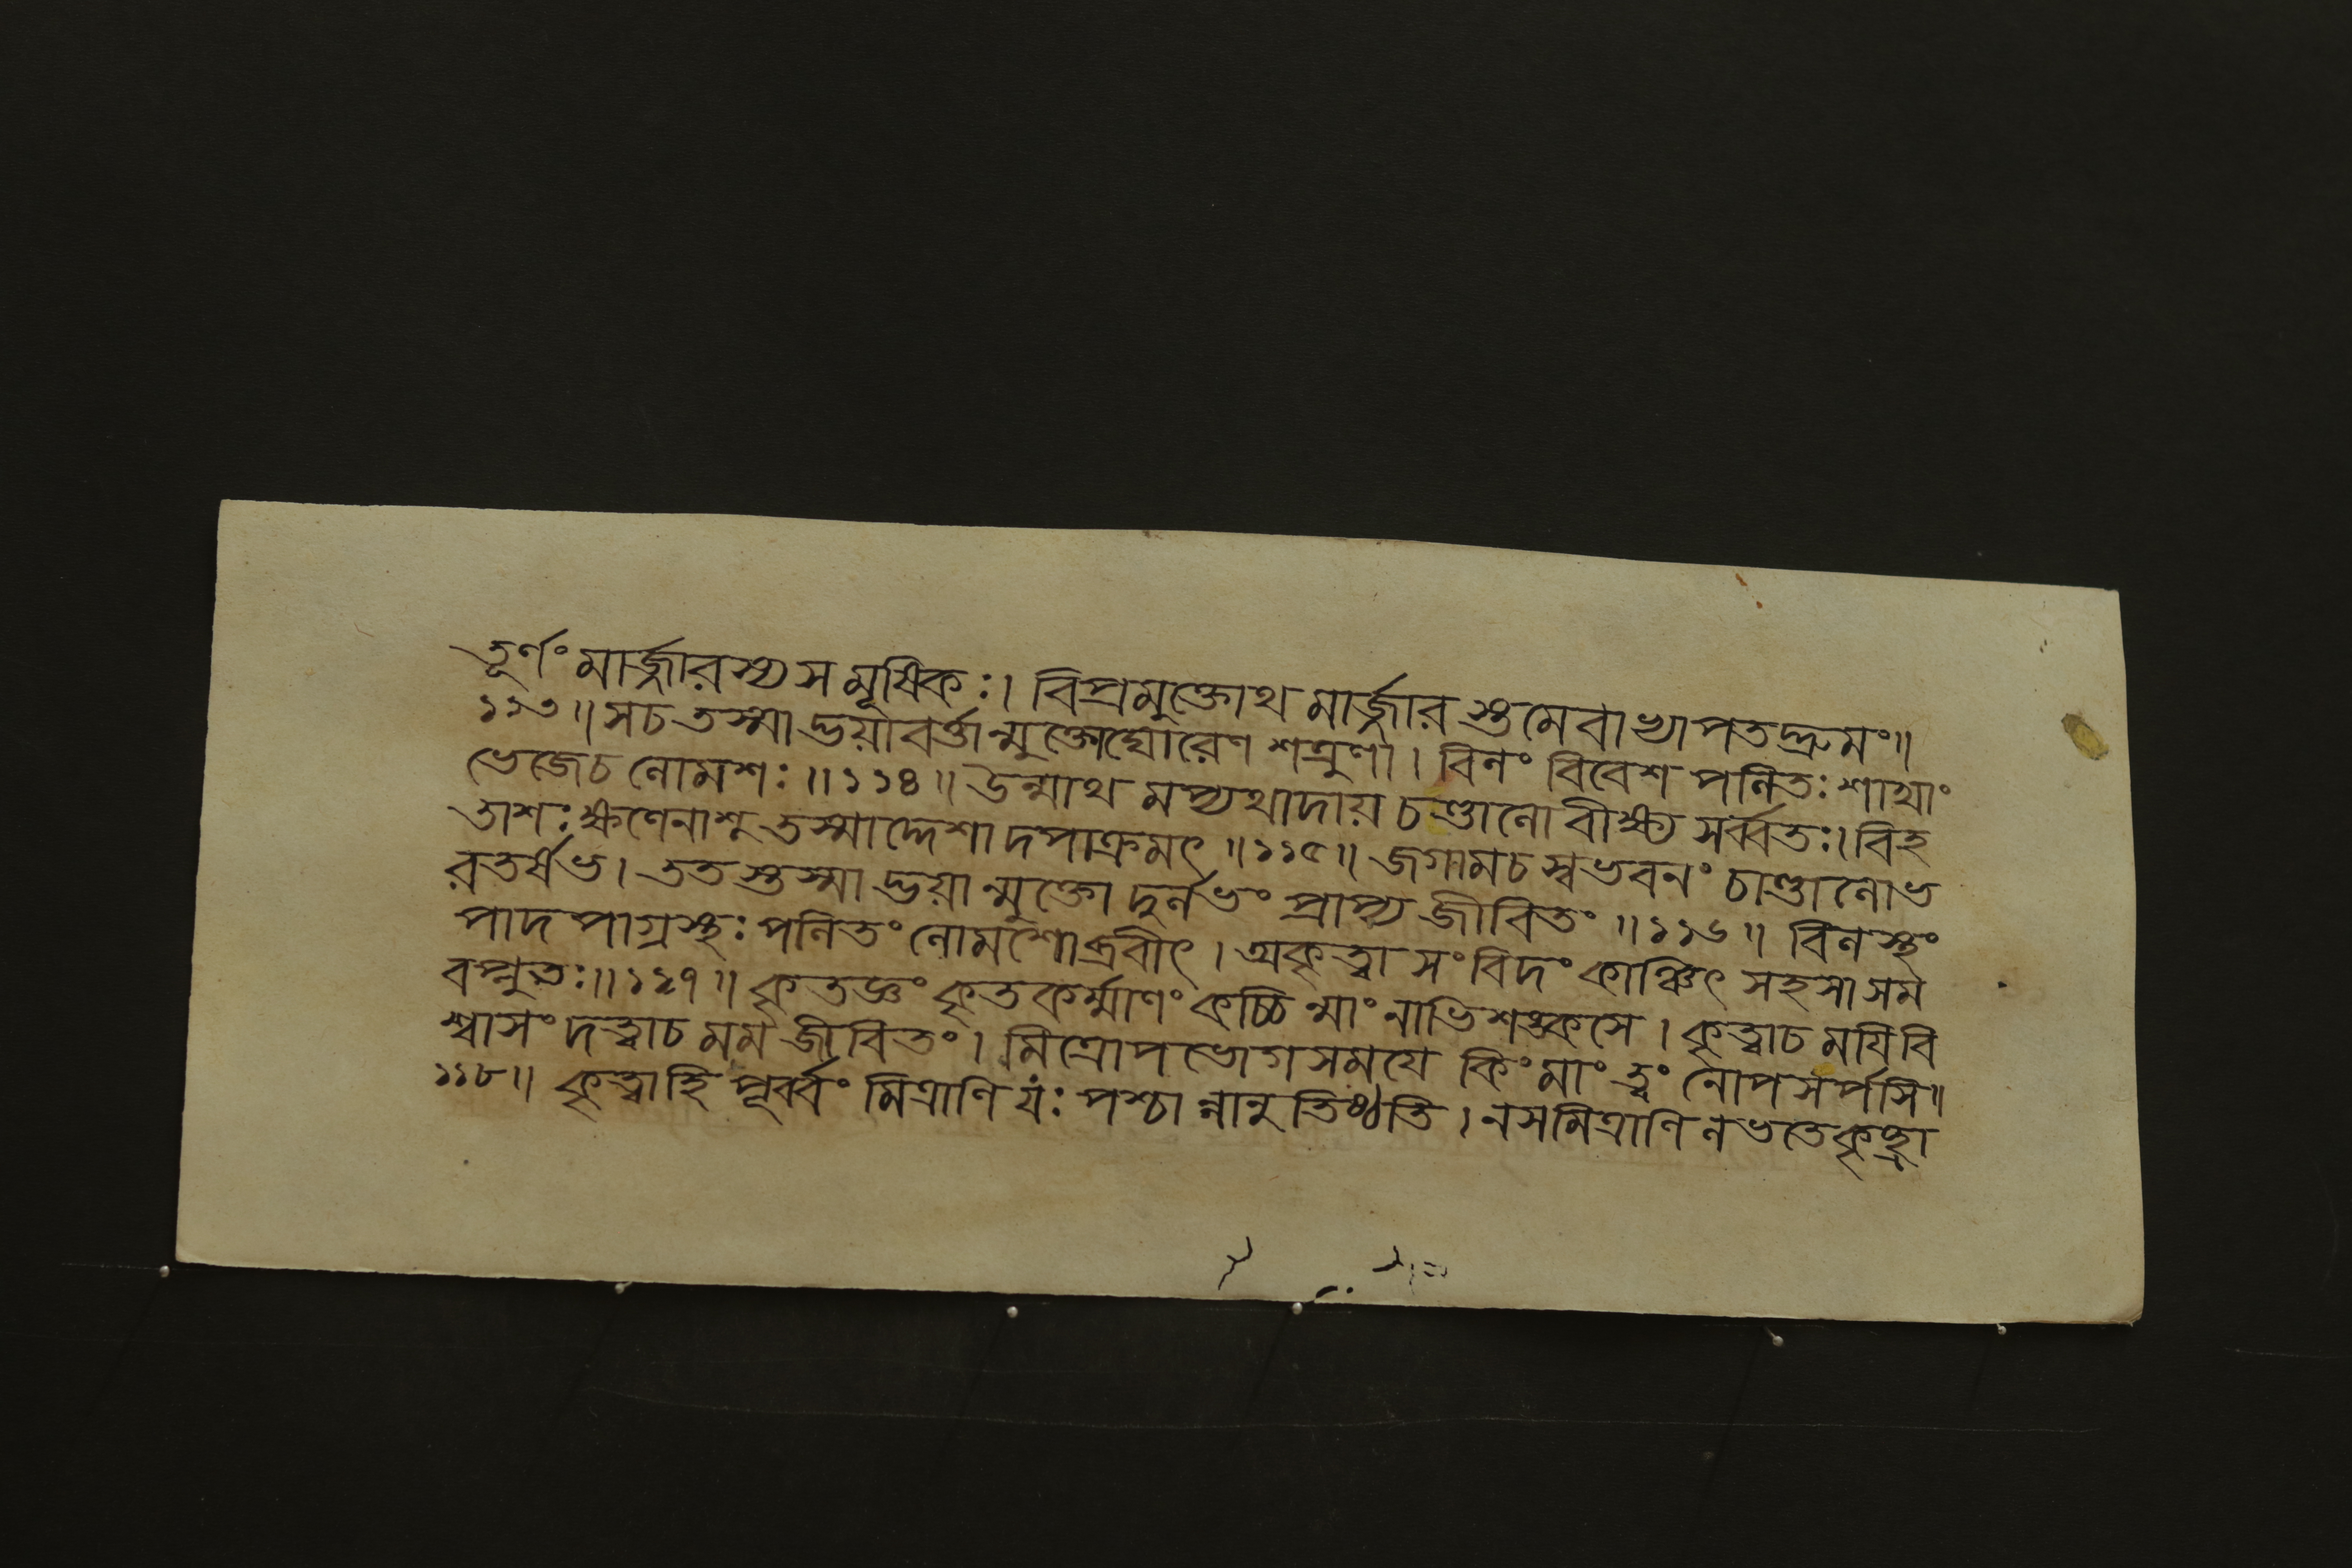 তূর্ণং মার্জ্জারস্য স মূষিকঃ। বিপ্রমুক্তোথ মার্জ্জার স্তমেবাভ্যাপতদ্দ্রুমং॥
১১৩॥ সচ তস্মাদ্ভয়াবর্ত্তান্মুক্তোঘোরেণ শত্রুণা। বিলং বিবেশ পলিতঃ শাখাং
ভেজেচ লোমশঃ॥ ১১৪॥ উন্মাথ মপ্যথাদায় চণ্ডালো বীক্ষ্য সর্ব্বতঃ। বিহ
তাশঃ ক্ষণেনাশু তস্মাদ্দেশাদপাক্রমৎ॥ ১১৫॥ জগামচ স্বভবনং চাণ্ডালোভ
রতর্ষভ। ততস্তস্মাদ্ভয়ান্মুক্তো দুর্লভং প্রাপ্য জীবিতং॥ ১১৬॥ বিলস্থং
পাদপাগ্রস্থঃ পলিতং লোমশোব্রবীৎ। অকৃত্বা সংবিদং কাঞ্চিৎ সহসা সম
বপ্লুতঃ॥ ১১৭॥ কৃতজ্ঞং কৃতকর্ম্মাণং কচ্চিন্মাং নাভিশঙ্কসে। কৃত্বাচ ময়িবি
শ্বাসং দত্ত্বাচ মম জীবিতং। মিত্রোপভোগসময়ে কিং মাং ত্বং নোপসর্পসি॥
১১৮॥ কৃত্বাহি পূর্ব্বং মিত্রাণি যঃ পশ্চান্নানুতিষ্ঠতি। নসমিত্রাণি লভতেকৃচ্ছ্রা